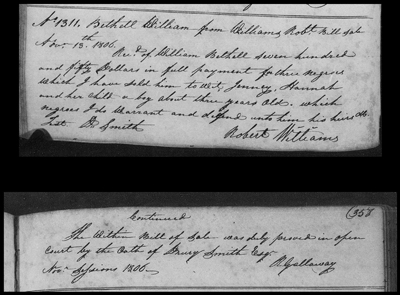 No 1311. Bethell William from Williams, Robt. Bill Sale
Novr. 13th. 1806.
Recd. of William Bethell seven hundred
and fifty Dollars in full payment for three Negroes
which I have sold him to wit, Jenney, Hannah
and her child a boy about three years old. which
negroes I do Warrant and defend unto him his heirs &c
Test Dr. Smith
Robert Williams
Continued
(358
The within Bill of Sale was duly proved in open
Court by the Oath of Drury Smith Esqr.
Novr. Sessions 1806
R. Gallaway